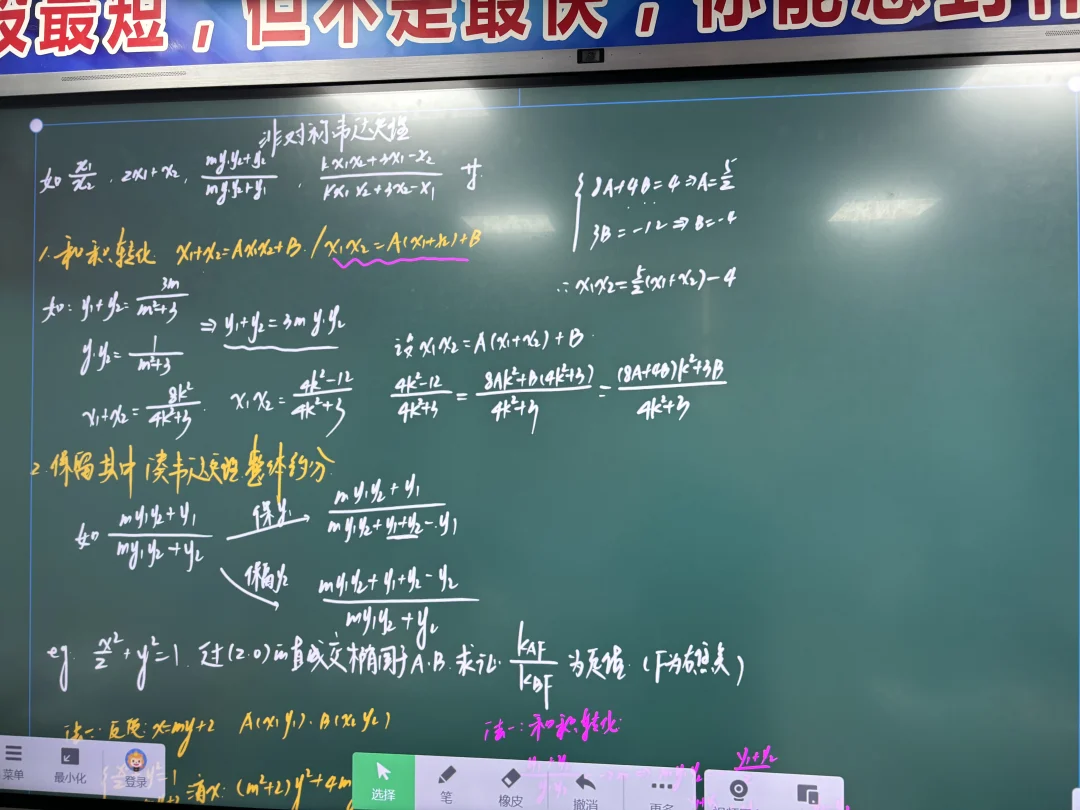 最短，但不是最快，你能想到
非对称韦达定理
如 x₁/x₂ , 2x₁+x₂ , (my₁y₂+y₂)/(my₁y₂+y₁) , (kx₁x₂+3x₁-x₂)/(kx₁x₂+3x₂-x₁) 等
1. 和积转化 x₁+x₂=Ax₁x₂+B. / x₁x₂=A(x₁+x₂)+B
如: y₁+y₂= 3m/(m²+3)
y₁y₂= 1/(m²+3)
⇒ y₁+y₂=3my₁y₂
x₁+x₂= 8k²/(4k²+3) . x₁x₂= (4k²-12)/(4k²+3)
{ 8A+4B=4⇒A=5/2
3B=-12⇒B=-4
∴ x₁x₂=5/2(x₁+x₂)-4
设 x₁x₂=A(x₁+x₂)+B
(4k²-12)/(4k²+3) = (8Ak²+B(4k²+3))/(4k²+3) = ((8A+4B)k²+3B)/(4k²+3)
2. 保留其中 凑韦达定理 整体约分
如 (my₁y₂+y₁)/(my₁y₂+y₂)
保y₁ (my₁y₂+y₁)/(my₁y₂+y₁+y₂-y₁)
保留y₂ (my₁y₂+y₁+y₂-y₂)/(my₁y₂+y₂)
eg. x²/2+y²=1. 过(2.0)的直线交椭圆于A.B. 求证: k_AF/k_BF 为定值. (F为右焦点)
法一: 反设: x=my+2 A(x₁y₁). B(x₂y₂)
法一: 和积转化:
消x: (m²+2)y²+4m
y₁+y₂
菜单
最小化
登录
选择
笔
橡皮
撤消
更多